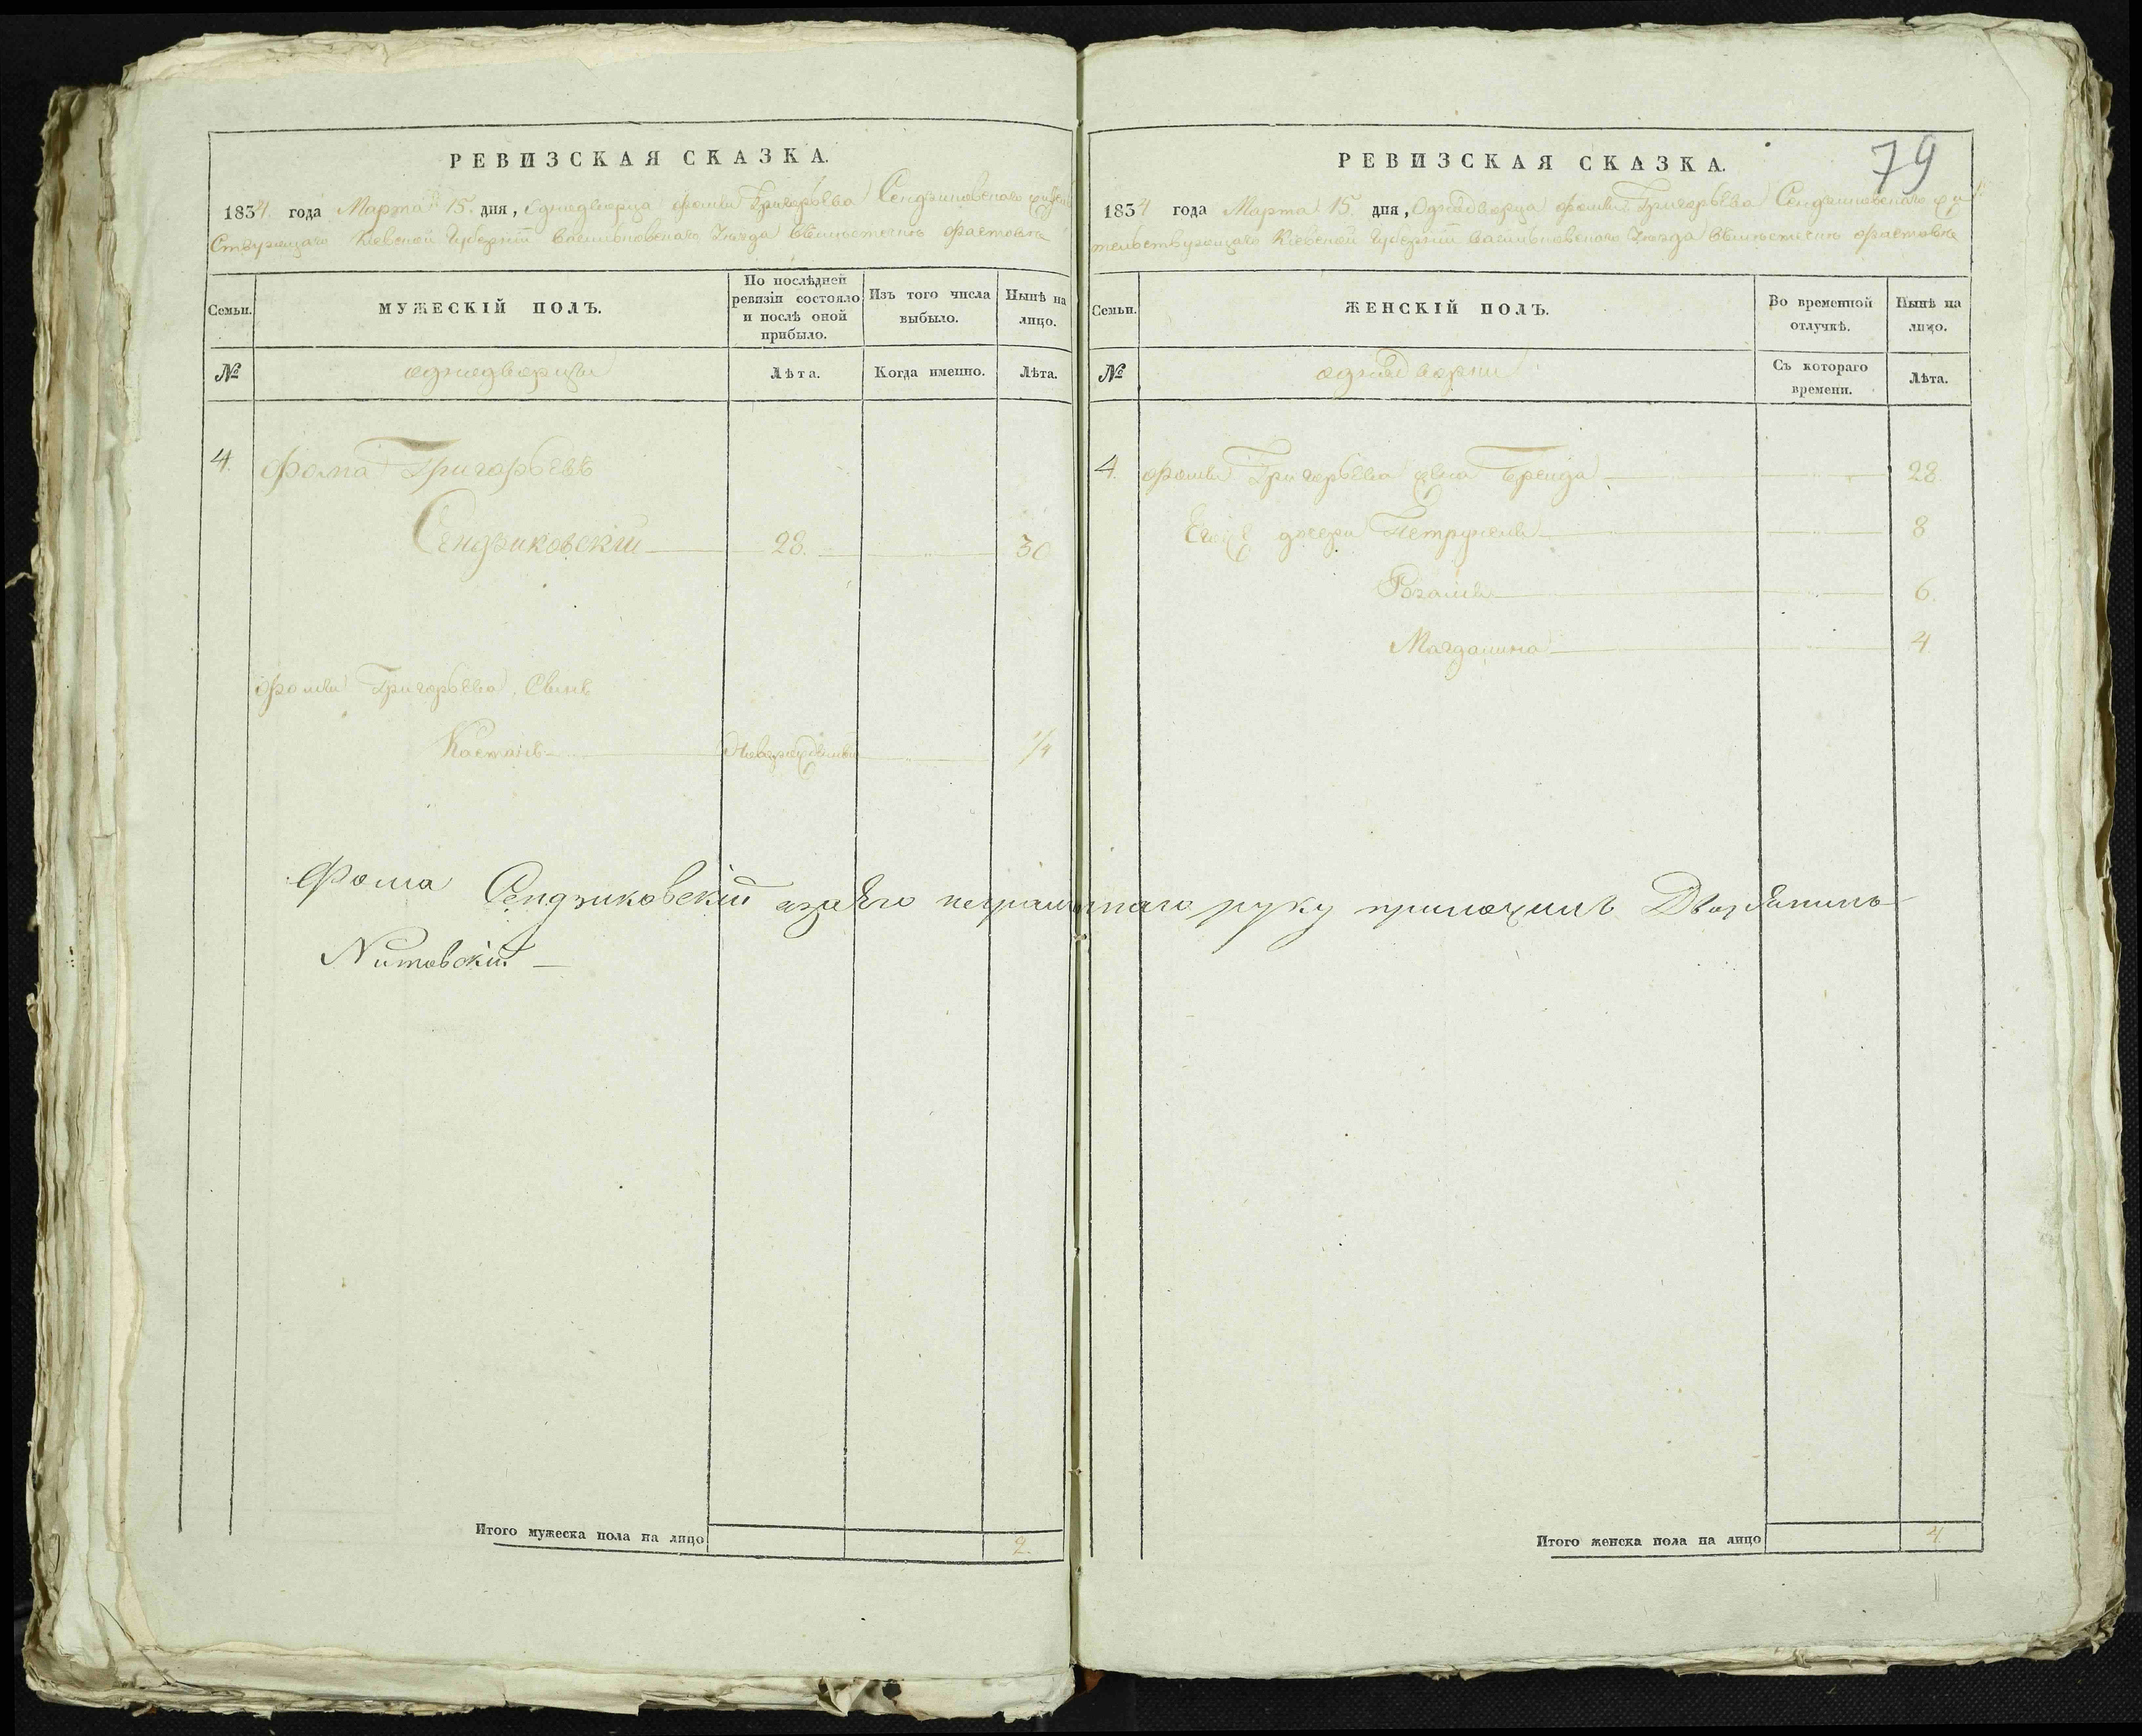 РЕВИЗСКАЯ СКАЗКА.
1834 года Марта 15. дня, Однодворца Фомы Григорьева Сендзиковскаго жител
ствующаго Кіевской Губерніи Васильковскаго Уѣзда въ мѣстечкѣ Фастовѣ
Семьи.
МУЖЕСКІЙ ПОЛЪ.
По послѣдней ревизіи состояло и послѣ оной прибыло.
Изъ того числа выбыло.
Нынѣ на лицо.
№
однодворцы
Лѣта.
Когда именно.
Лѣта.
4. Фома Григорьевъ
Сендзиковскій 28. 30
Фомы Григорьева Сынъ
Каетанъ Новорожденный 1/4
Фома Сендзиковскій а за Его неграмотнаго руку приложилъ Дворянинъ
Нитовскій
Итого мужеска пола на лицо 2.
79
РЕВИЗСКАЯ СКАЗКА.
1834 года Марта 15. дня, Однодворца Фомы Григорьева Сендзиковскаго жи
тельствующаго Кіевской Губерніи Васильковскаго Уѣзда въ мѣстечкѣ Фастовѣ
Семьи.
ЖЕНСКІЙ ПОЛЪ.
Во временной отлучкѣ.
Нынѣ на лицо.
№
однодворки
Съ котораго времени.
Лѣта.
4. Фомы Григорьева жена 28.
Егожъ дочери 8
Розалія 6.
Магдалина 4
Итого женска пола на лицо 4